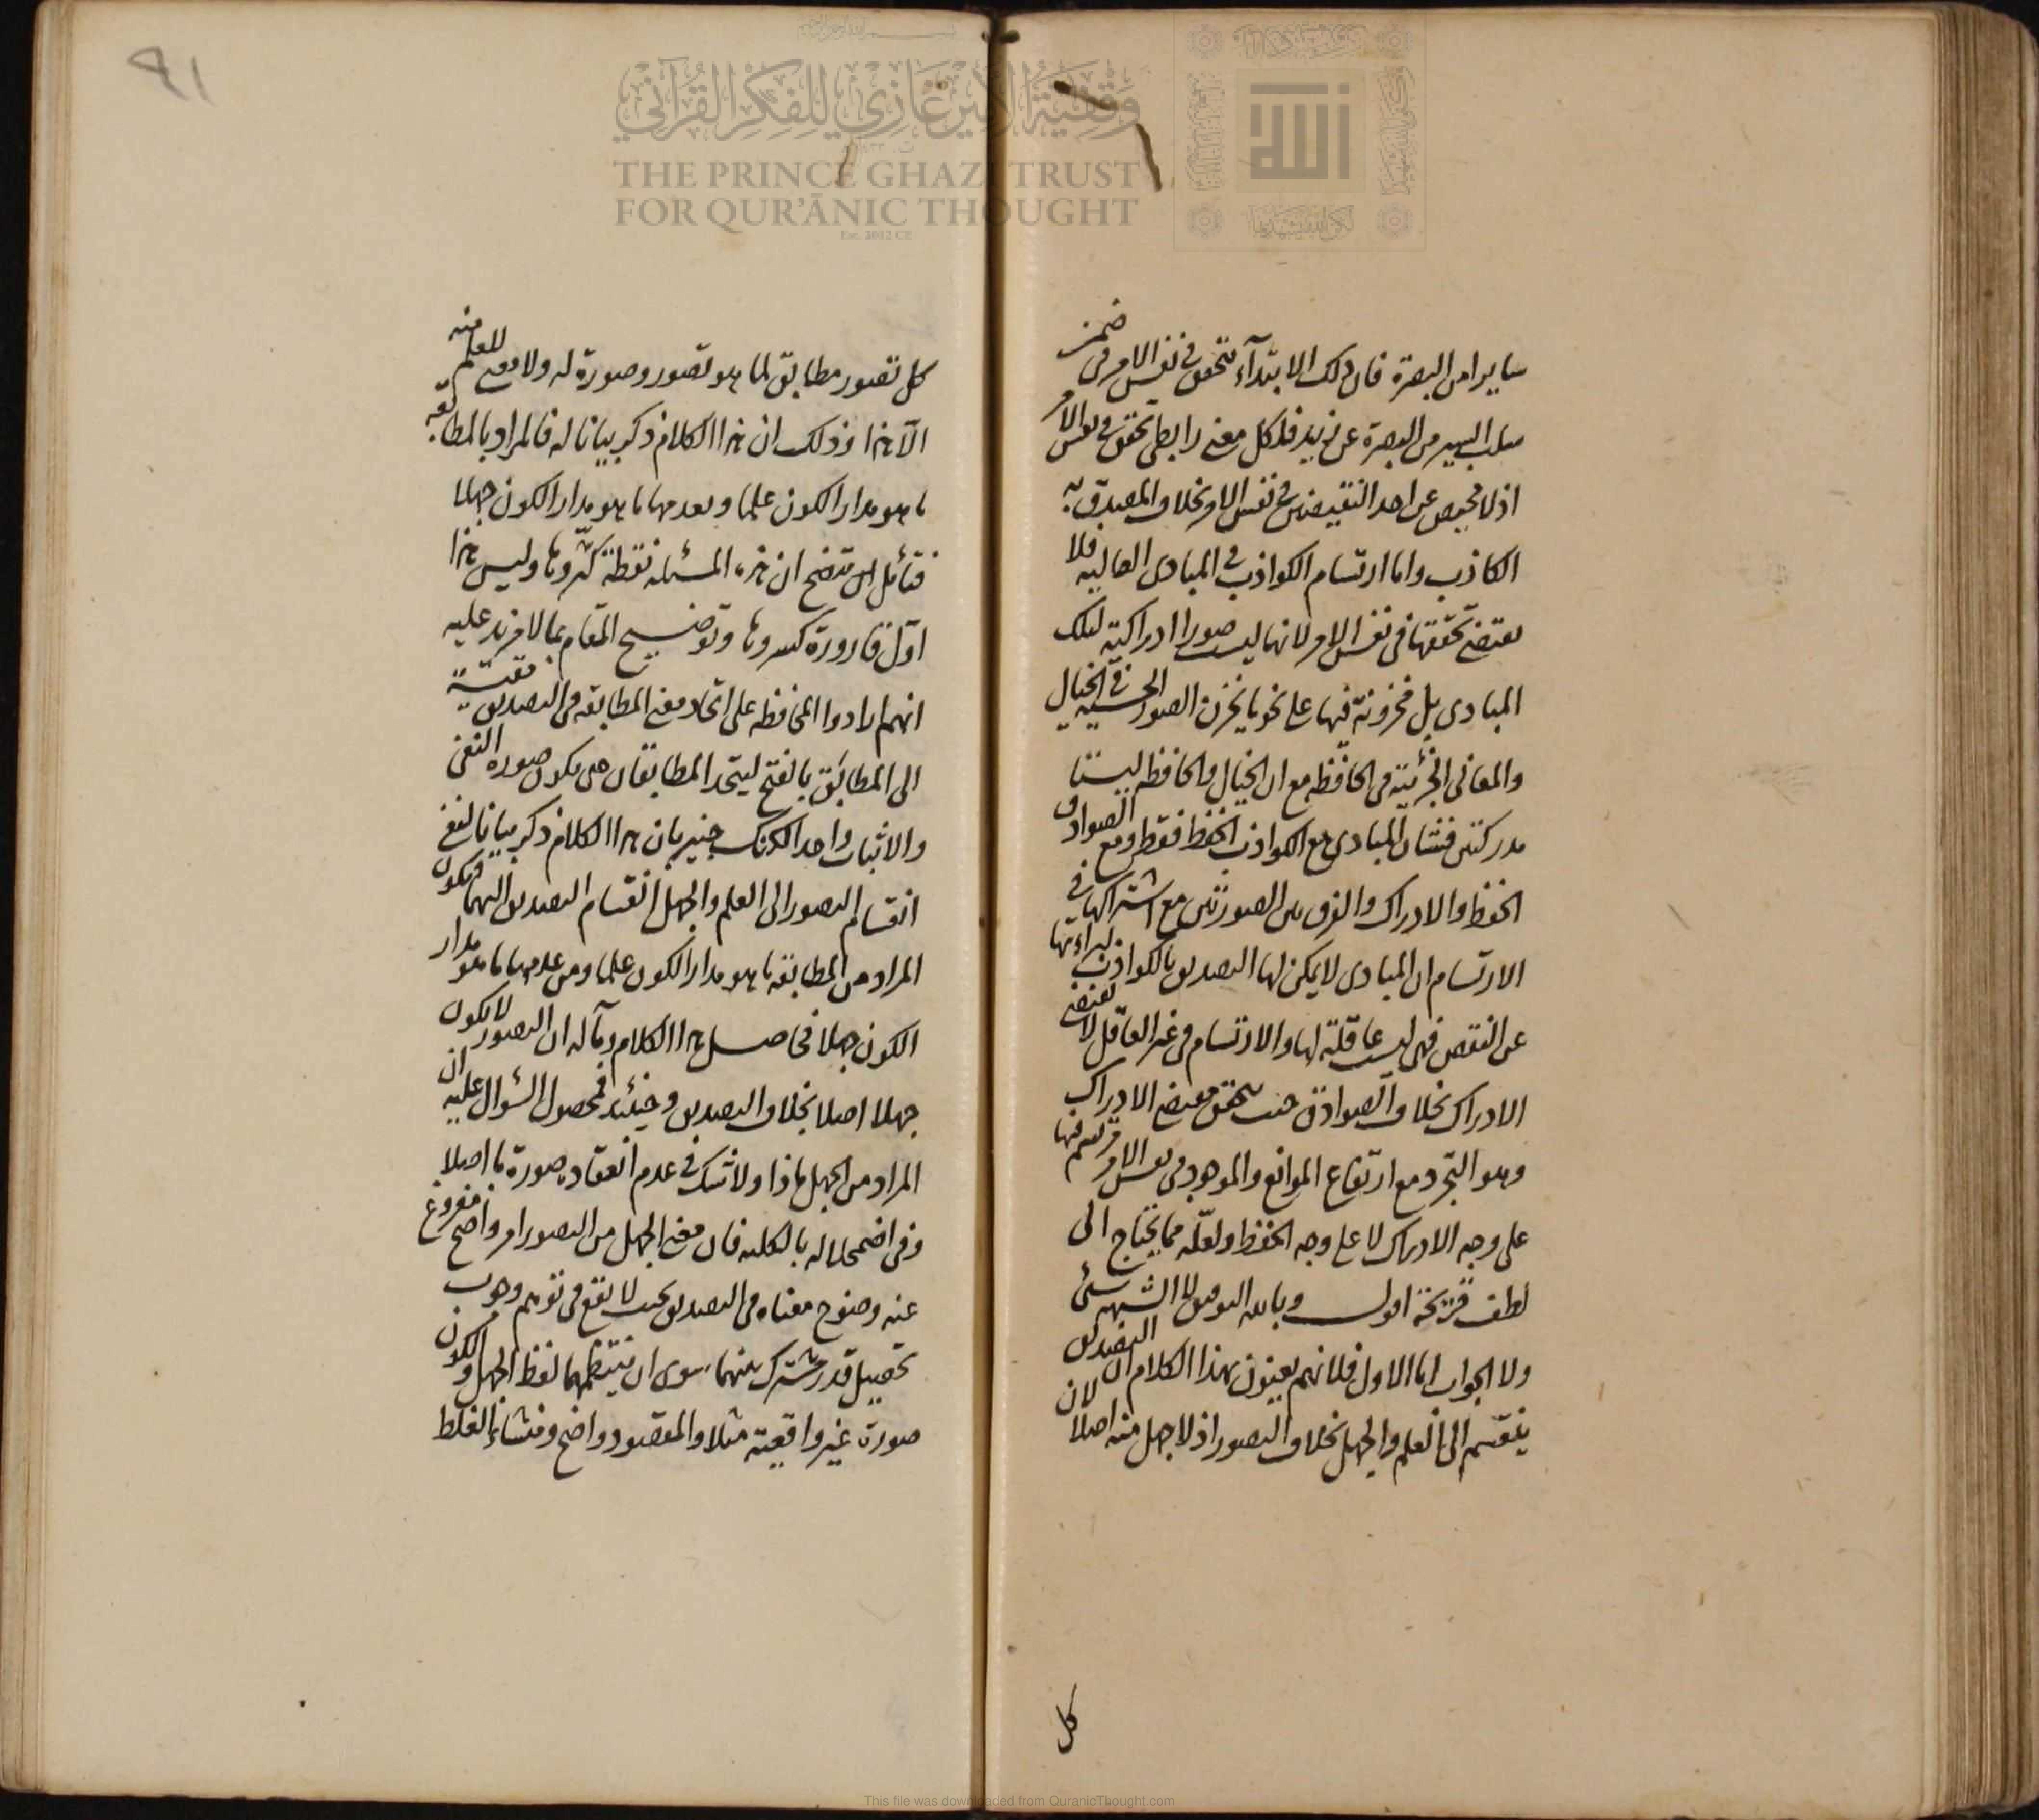 سايرا من البصرة فان ذلك الابتدآء تتحقق في نفس الامر في ضمن
سلب السير من البصرة عن زيد فلكل معنى رابطي تحقق في نفس الامر
اذ لا محيص عن احد النقيضين في نفس الامر بخلاف المصدق به
الكاذب واما ارتسام الكواذب في المبادى العاليه فلا
يقتضي تحققها في نفس الامر لانها ليست صورا ادراكية لتلك
المبادى بل مخزونة فيها على نحو ما يخزن الصور الحسيه في الخيال
والمعاني الجزئية في الحافظه مع ان الخيال والحافظه ليستا
مدركتين فشان المبادى مع الكواذب الحفظ فقط ومع الصوادق
الحفظ والادراك والفرق بين الصورتين مع اشتراكها في
الارتسام ان المبادى لا يمكن لها التصديق بالكواذب لبرائتها
عن النقص فهي ليست عاقلة لها والارتسام في غير العاقل لا يقتضي
الادراك بخلاف الصوادق حيث يتحقق مقتضي الادراك
وهو التجرد مع ارتفاع الموانع والموجود في نفس الامر مرتسم فيها
على وجه الادراك لا على وجه الحفظ ولعله مما يحتاج الى
لطف قريحة اقول وبالله التوفيق لا الشبهه شئ
ولا الجواب اما الاول فلانهم يعنون بهذا الكلام ان التصديق
ينقسم الى العلم والجهل بخلاف التصور اذ لا جهل منه اصلا لان
كل
٩١
كل تصور مطابق لما هو تصور وصورة له ولا معنى للعلم منه
الا هذا وذلك ان هذا الكلام ذكر بيانا له فالمراد بالمطابقه
ما هو مدار الكون علما وبعدمها ما هو مدار الكون جهلا
فتأمل ان هذه المسئله نقطة كثروها وليس هذا
اول قارورة كسروها وتوضيح المقام بما لا مزيد عليه
انهم ارادوا المحافظه على اتحاد معنى المطابقه في التصديق
الى المطابق بالفتح ليتحد المطابقان حتى يكون صورة النفي
والاثبات واحدا لكنك خبير بان هذا الكلام ذكر بيانا لنفي
انقسام التصور الى العلم والجهل انقسام التصديق اليهما فيكون
المراد من المطابقه ما هو مدار الكون علما ومن عدمها ما هو مدار
الكون جهلا فحاصل هذا الكلام ومآله ان التصور لا يكون
جهلا اصلا بخلاف التصديق وحينئذ فمحصول السؤال عليه ان
المراد من الجهل ماذا ولا شك في عدم انعقاده صورة ما اصلا
وفي اضمحلاله بالكليه فان معنى الجهل من التصور امر واضح مفروغ
عنه وضوح معناه في التصديق بحيث لا يقع في توهم وجوب
تحصيل قدر مشترك بينهما سوى ان ينتظمهما لفظ الجهل والكون
صورة غير واقعية مثلا والمقصود واضح ومنشاء الغلط
وقفية الأمير غازي للفكر القرآني
THE PRINCE GHAZI TRUST
FOR QUR'ĀNIC THOUGHT
Est. 2012 CE
الله
This file was downloaded from QuranicThought.com